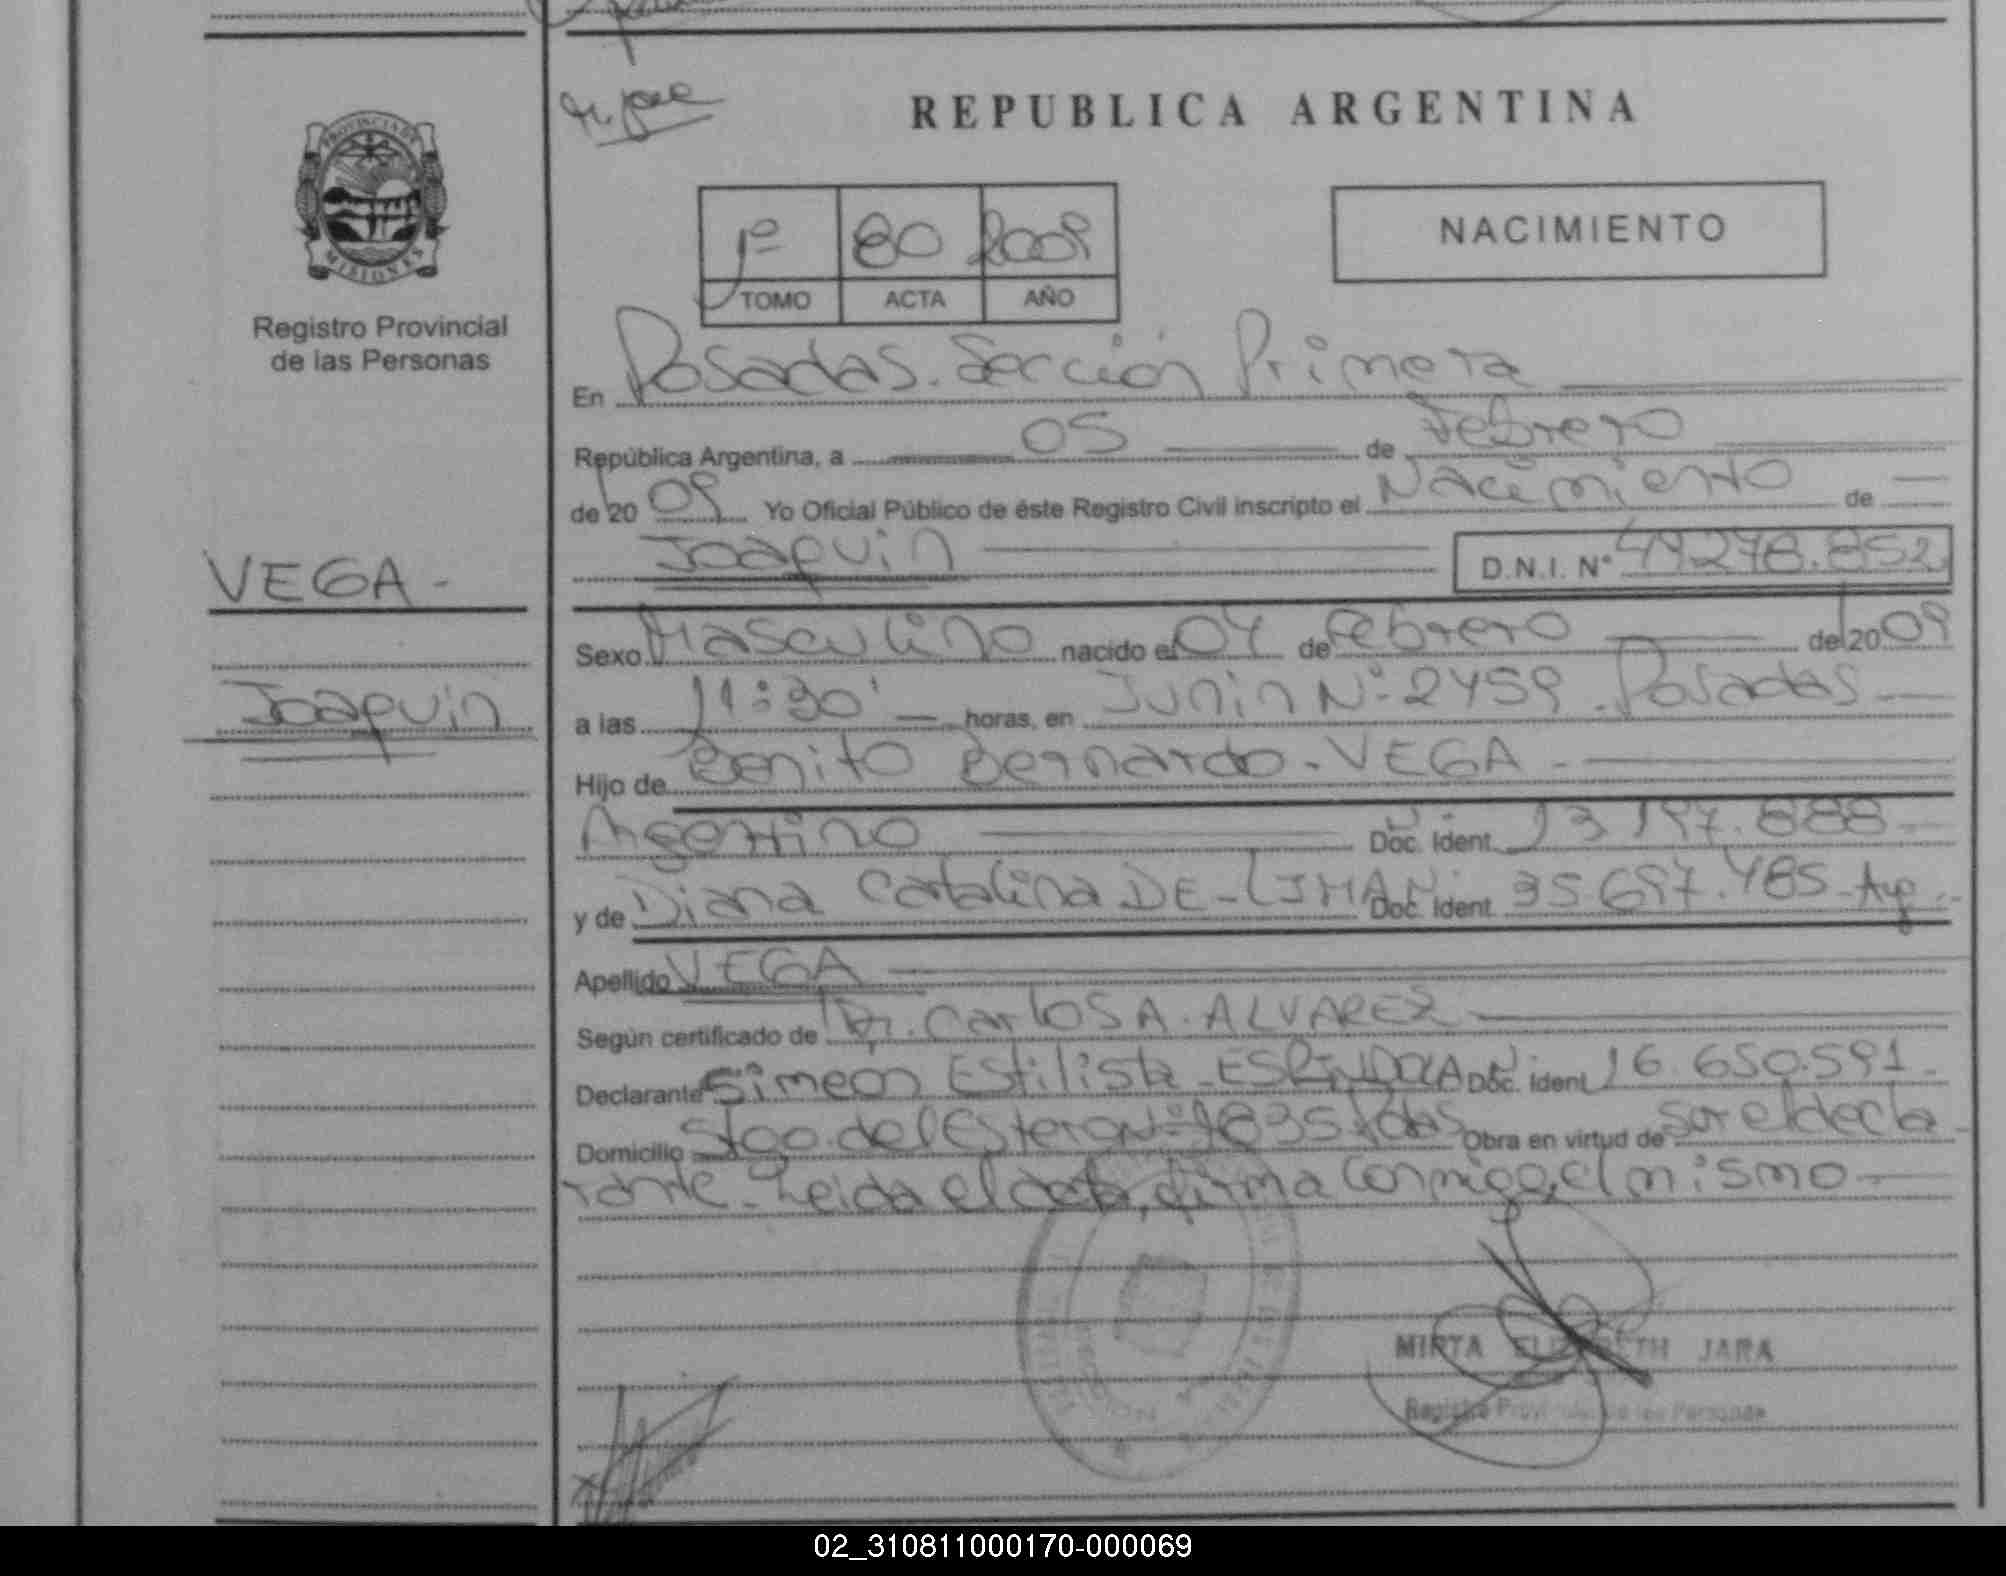 REPUBLICA ARGENTINA
PROVINCIA DE
MISIONES
Registro Provincial
de las Personas
1º 80 2009
TOMO ACTA AÑO
NACIMIENTO
En Posadas. Sección Primera
República Argentina, a 05 de Febrero
de 20 09 Yo Oficial Público de éste Registro Civil inscripto el Nacimiento de
Joaquin D.N.I. Nº 49.278.852
VEGA -
Joaquin
Sexo Masculino nacido el 04 de Febrero de 20 09
a las 11:30' horas, en Junin Nº 2459 - Posadas
Hijo de Benito Bernardo - VEGA -
Argentino Doc. Ident. 13.197.888
y de Diana Catalina DE-LIMA Doc. Ident. 35.697.485 - Arg.
Apellido VEGA
Según certificado de Dr. Carlos A. ALVAREZ
Declarante Simeon Estilista ESPINDOLA Doc. Ident. 16.650.591
Domicilio Stgo. del Estero Nº 1835 Pdas Obra en virtud de ser el decla
rante - Leida el acta, firma conmigo, el mismo
MIRTA ELIZABETH JARA
Registro Provincial de las Personas
02_310811000170-000069